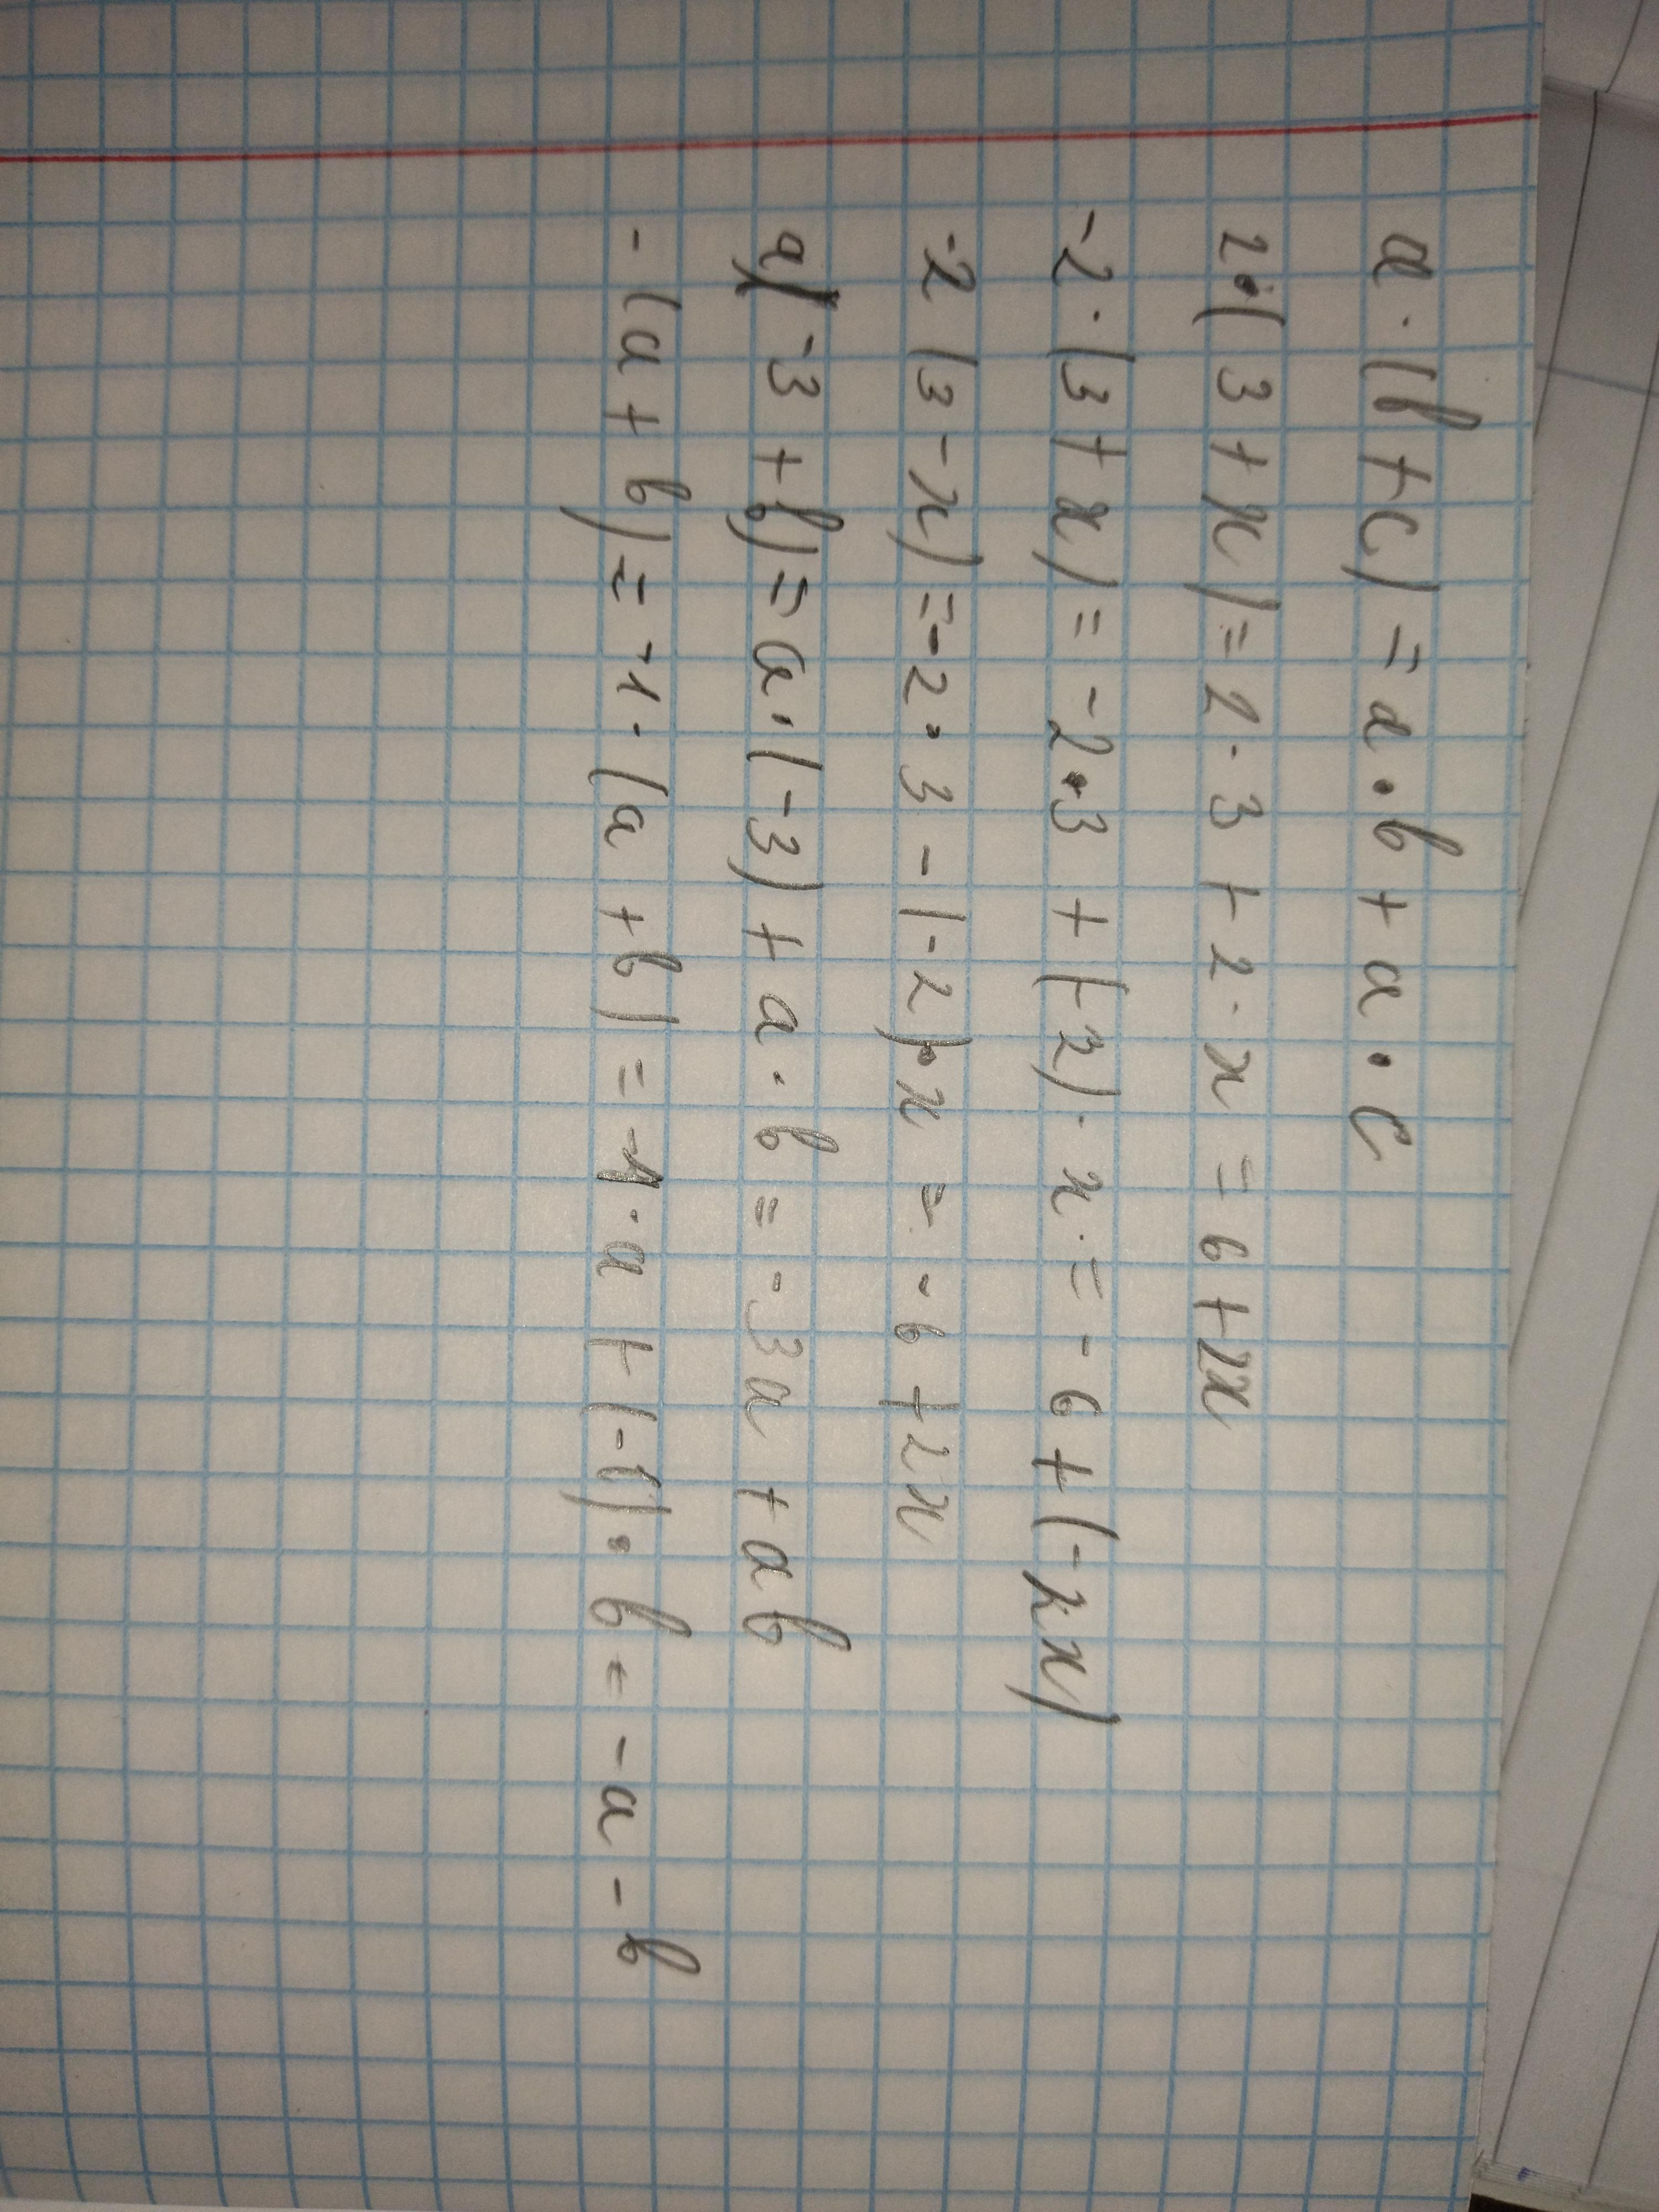 a · (b + c) = a · b + a · c
2 · (3 + x) = 2 · 3 + 2 · x = 6 + 2x
-2 · (3 + x) = -2 · 3 + (-2) · x · = -6 + (-2x)
-2 (3 - x) = -2 · 3 - (-2) · x = -6 + 2x
a(-3 + b) = a · (-3) + a · b = -3a + ab
- (a + b) = -1 · (a + b) = -1 · a + (-1) · b = -a - b